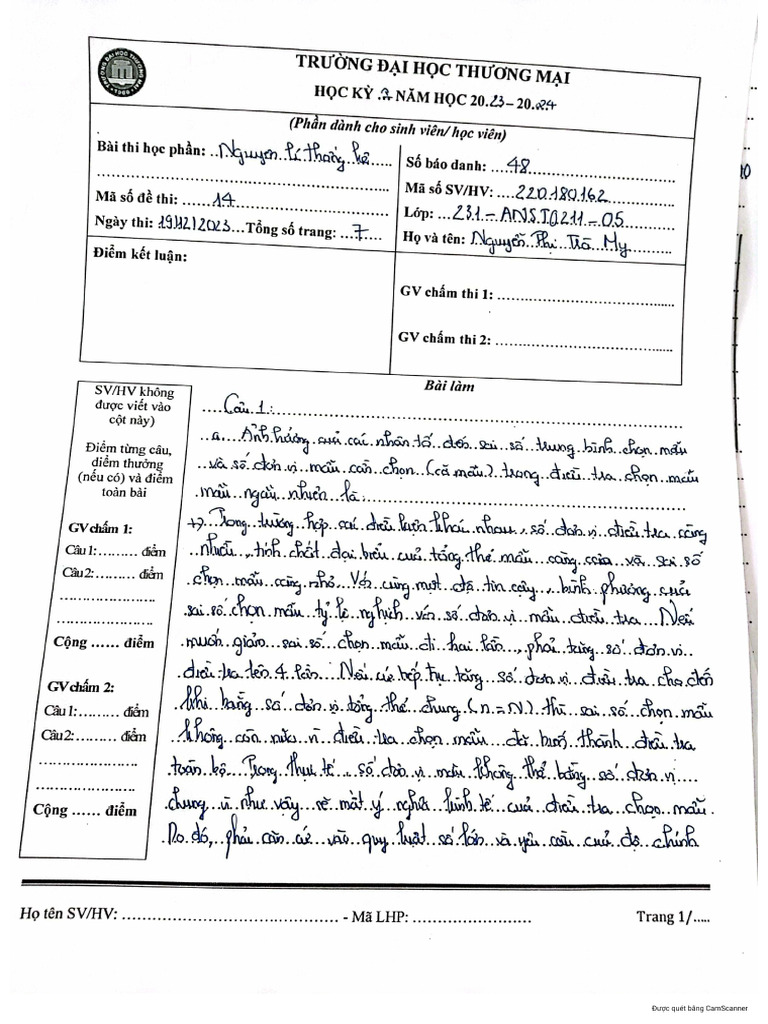 TRƯỜNG ĐẠI HỌC THƯƠNG MẠI
HỌC KỲ .2. NĂM HỌC 20.23 – 20.24
(Phần dành cho sinh viên/ học viên)
Bài thi học phần: ..Nguyên lí thống kê......
Số báo danh: ....48..........
Mã số SV/HV: ....220180162
Mã số đề thi: ......14..........
Lớp: ...231 - ANST0211 - 05..
Ngày thi: 19/12/2023...Tổng số trang: ...7....
Họ và tên: Nguyễn Thị Trà My
Điểm kết luận:
GV chấm thi 1: ..................................
GV chấm thi 2: ..................................
Bài làm
SV/HV không
được viết vào
cột này)
Điểm từng câu,
diểm thưởng
(nếu có) và điểm
toàn bài
GV chấm 1:
Câu 1: ......... điểm
Câu 2: ......... điểm
Cộng ...... điểm
GV chấm 2:
Câu 1: ......... điểm
Câu 2: ......... điểm
Cộng ...... điểm
Câu 1:
a. Ảnh hưởng của các nhân tố đến sai số trung bình chọn mẫu
và số đơn vị mẫu cần chọn (cỡ mẫu) trong điều tra chọn mẫu
mẫu ngẫu nhiên là:
+) Trong trường hợp các điều kiện khác nhau, số đơn vị điều tra càng
nhiều, tính chất đại biểu của tổng thể mẫu càng cao và sai số
chọn mẫu càng nhỏ. Với cùng một độ tin cậy, bình phương của
sai số chọn mẫu tỷ lệ nghịch với số đơn vị mẫu điều tra. Nếu
muốn giảm sai số chọn mẫu đi hai lần, phải tăng số đơn vị
điều tra lên 4 lần. Nếu cứ tiếp tục tăng số đơn vị điều tra cho đến
khi bằng số đơn vị tổng thể chung (n = N) thì sai số chọn mẫu
không còn nữa vì điều tra chọn mẫu đã biến thành điều tra
toàn bộ. Trong thực tế, số đơn vị mẫu không thể bằng số đơn vị
chung vì như vậy sẽ mất ý nghĩa kinh tế của điều tra chọn mẫu.
Do đó, phải căn cứ vào quy luật số lớn và yêu cầu của độ chính
Họ tên SV/HV: ........................................ - Mã LHP: ........................
Trang 1/.....
Được quét bằng CamScanner